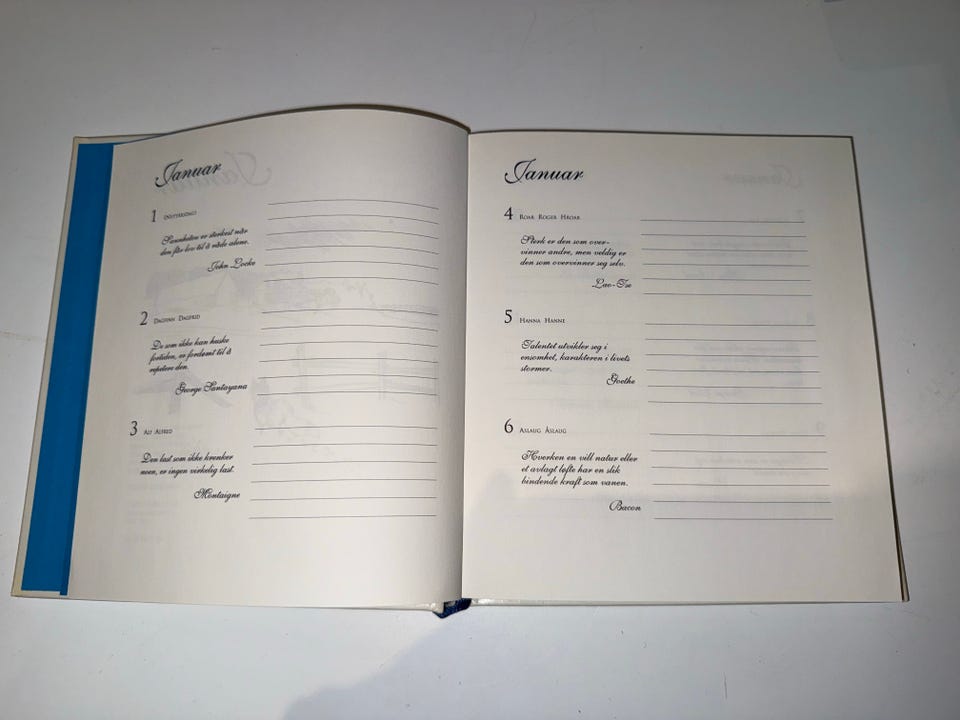 Januar
1 (NYTTÅRSDAG)
Sannheten er sterkest når
den får lov til å råde alene.
John Locke
2 DAGFINN DAGFRID
De som ikke kan huske
fortiden, er fordømt til å
repetere den.
George Santayana
3 ALF ALFRED
Den last som ikke krenker
noen, er ingen virkelig last.
Montaigne
Januar
4 ROAR ROGER HROAR
Sterk er den som over-
vinner andre, men veldig er
den som overvinner seg selv.
Lao-Tse
5 HANNA HANNE
Talentet utvikler seg i
ensomhet, karakteren i livets
stormer.
Goethe
6 ASLAUG ÅSLAUG
Hverken en vill natur eller
et avlagt løfte har en slik
bindende kraft som vanen.
Bacon